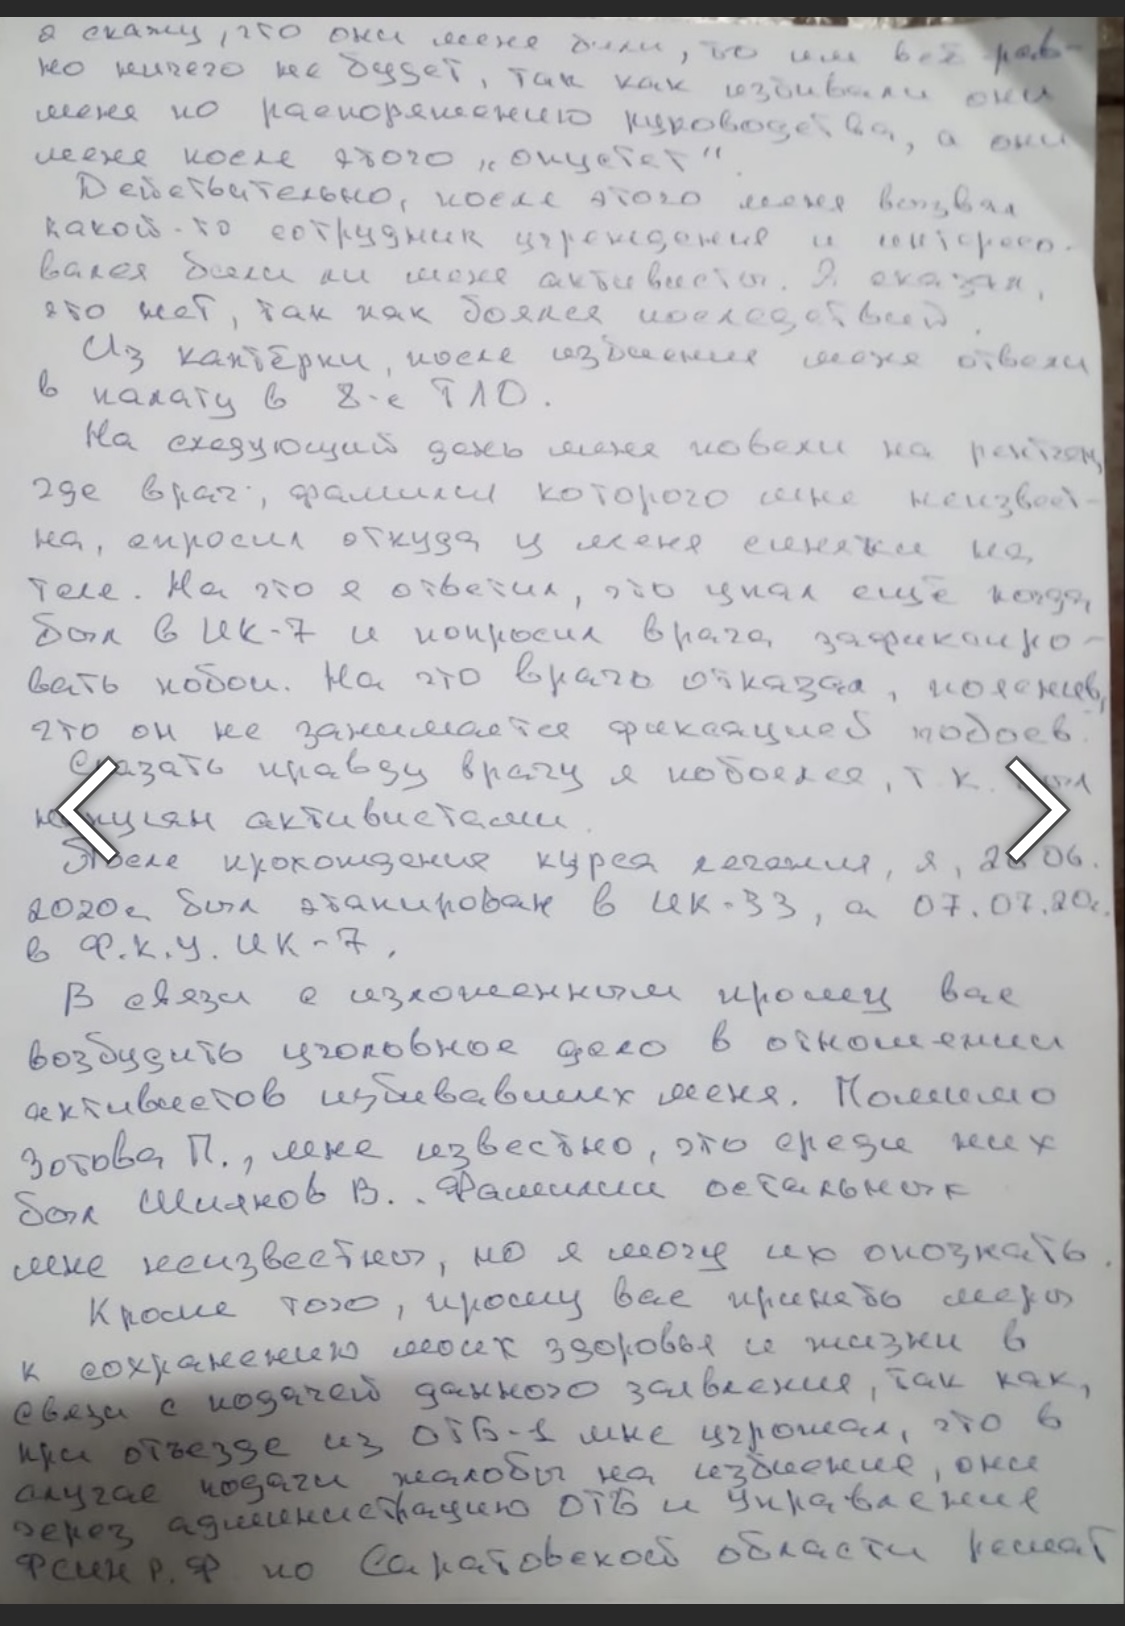 я скажу, что они меня били, то им всё рав-
но ничего не будет, так как избивали они
меня по распоряжению руководства, а они
меня после этого „опустят"
Действительно, после этого меня вызвал
какой-то сотрудник учреждения и интересо-
вался били ли меня активисты. Я сказал,
что нет, так как боялся последствий.
Из каптёрки, после избиения меня отвели
в палату в 8-е ТЛО.
На следующий день меня повели на рентген,
где врач, фамилия которого мне неизвест-
на, спросил откуда у меня синяки на
теле. На что я ответил, что упал ещё когда
был в ИК-7 и попросил врача зафиксиро-
вать побои. На что врачь отказал, пояснив,
что он не занимается фиксацией побоев.
Сказать правду врачу я побоялся, т.к. был
напуган активистами.
После прохождения курса лечения, я, 06.
2020г. был этапирован в ИК-33, а 07.07.20г.
в Ф.К.У. ИК-7.
В связи с изложенным прошу вас
возбудить уголовное дело в отношении
активистов избивавших меня. Помимо
Зотова П., мне известно, что среди них
был Шиянов В.. Фамилии остальных
мне неизвестны, но я могу их опознать.
Кроме того, прошу вас принять меры
к сохранению моих здоровья и жизни в
связи с подачей данного заявления, так как,
при отъезде из ОТБ-1 мне угрожал, что в
случае подачи жалобы на избиение, они
через администрацию ОТБ и Управление
ФСИН Р.Ф по Саратовской области решат